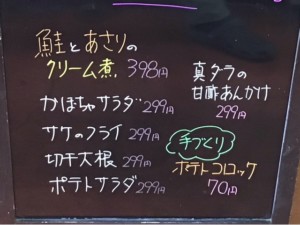 鮭とあさりの
クリーム煮 398円
かぼちゃサラダ 299円
サケのフライ 299円
切干大根 299円
ポテトサラダ 299円
真タラの
甘酢あんかけ
299円
手づくり
ポテトコロッケ
70円